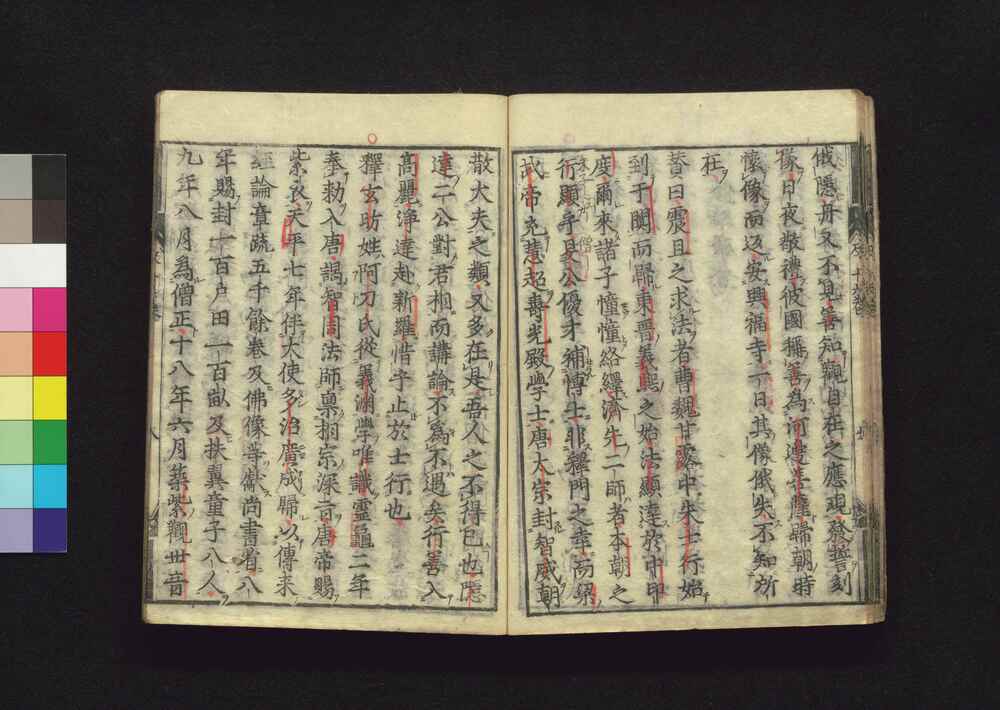 俄隱舟又不見善知觀自在之應現發誓刻
像日夜敬禮彼國稱善為河邊善薩歸朝時
懷像而之安興福寺一日其像俄失不知所
在
贊曰震旦之求法者曹魏甘露中朱士行始
到于闐而歸東晉義熙之始法顯達於中印
度爾來諸子憧憧絡繹濟先二師者本朝之
行顯乎具公優才補博士非釋門之㐮而梁
武帝充慧超壽光殿學士唐大宗封智威朝
散大夫之類又多在是吾人之不得已也隱
達二公對君相而講論不為不遇矣行善入
高麗淨達赴新羅惜乎止於士行也
釋玄昉姓阿刀氏從義淵學唯識靈龜二年
奉敕入唐謁智周法師稟相宗深旨唐帝賜
紫衣天平七年伴大使多治廣成歸以傳來
經論章疏五千餘卷及佛像等獻尚書省八
年賜封一百戶田一百畝及扶翼童子八人
九年八月為僧正十八年六月築紫觀世音